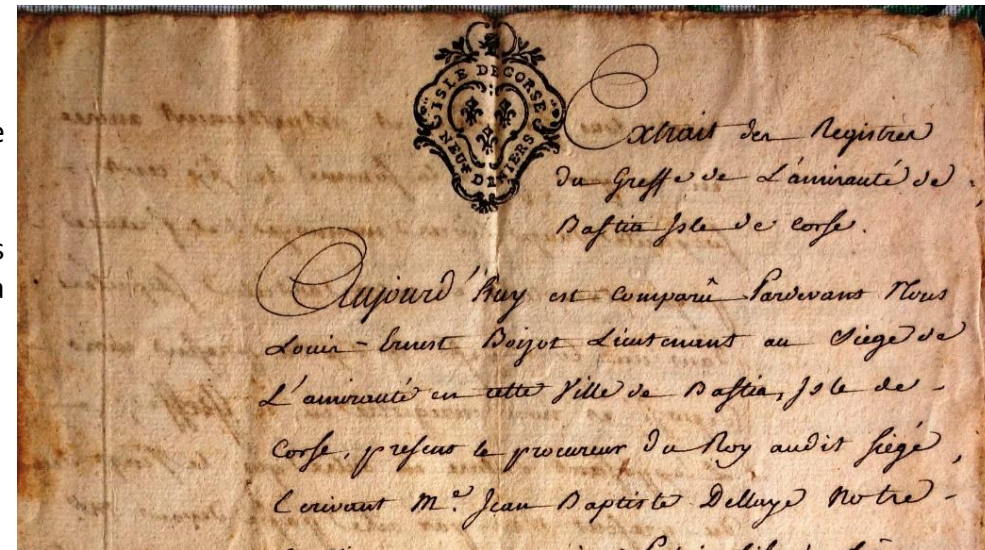 ISLE DE CORSE
NEUF DENIERS
Extrait des Registres
du Greffe de L'amirauté de
Bastia Isle de Corse.
Aujourd'huy est Comparû Pardevant Nous
Louis-Ernest Boizot Lieutenant au Siége de
L'amirauté en cette Ville de Bastia, Isle de-
Corse, present le procureur du Roy audit siégé,
Ecrivant M.e Jean Baptiste Dellaye Notre-